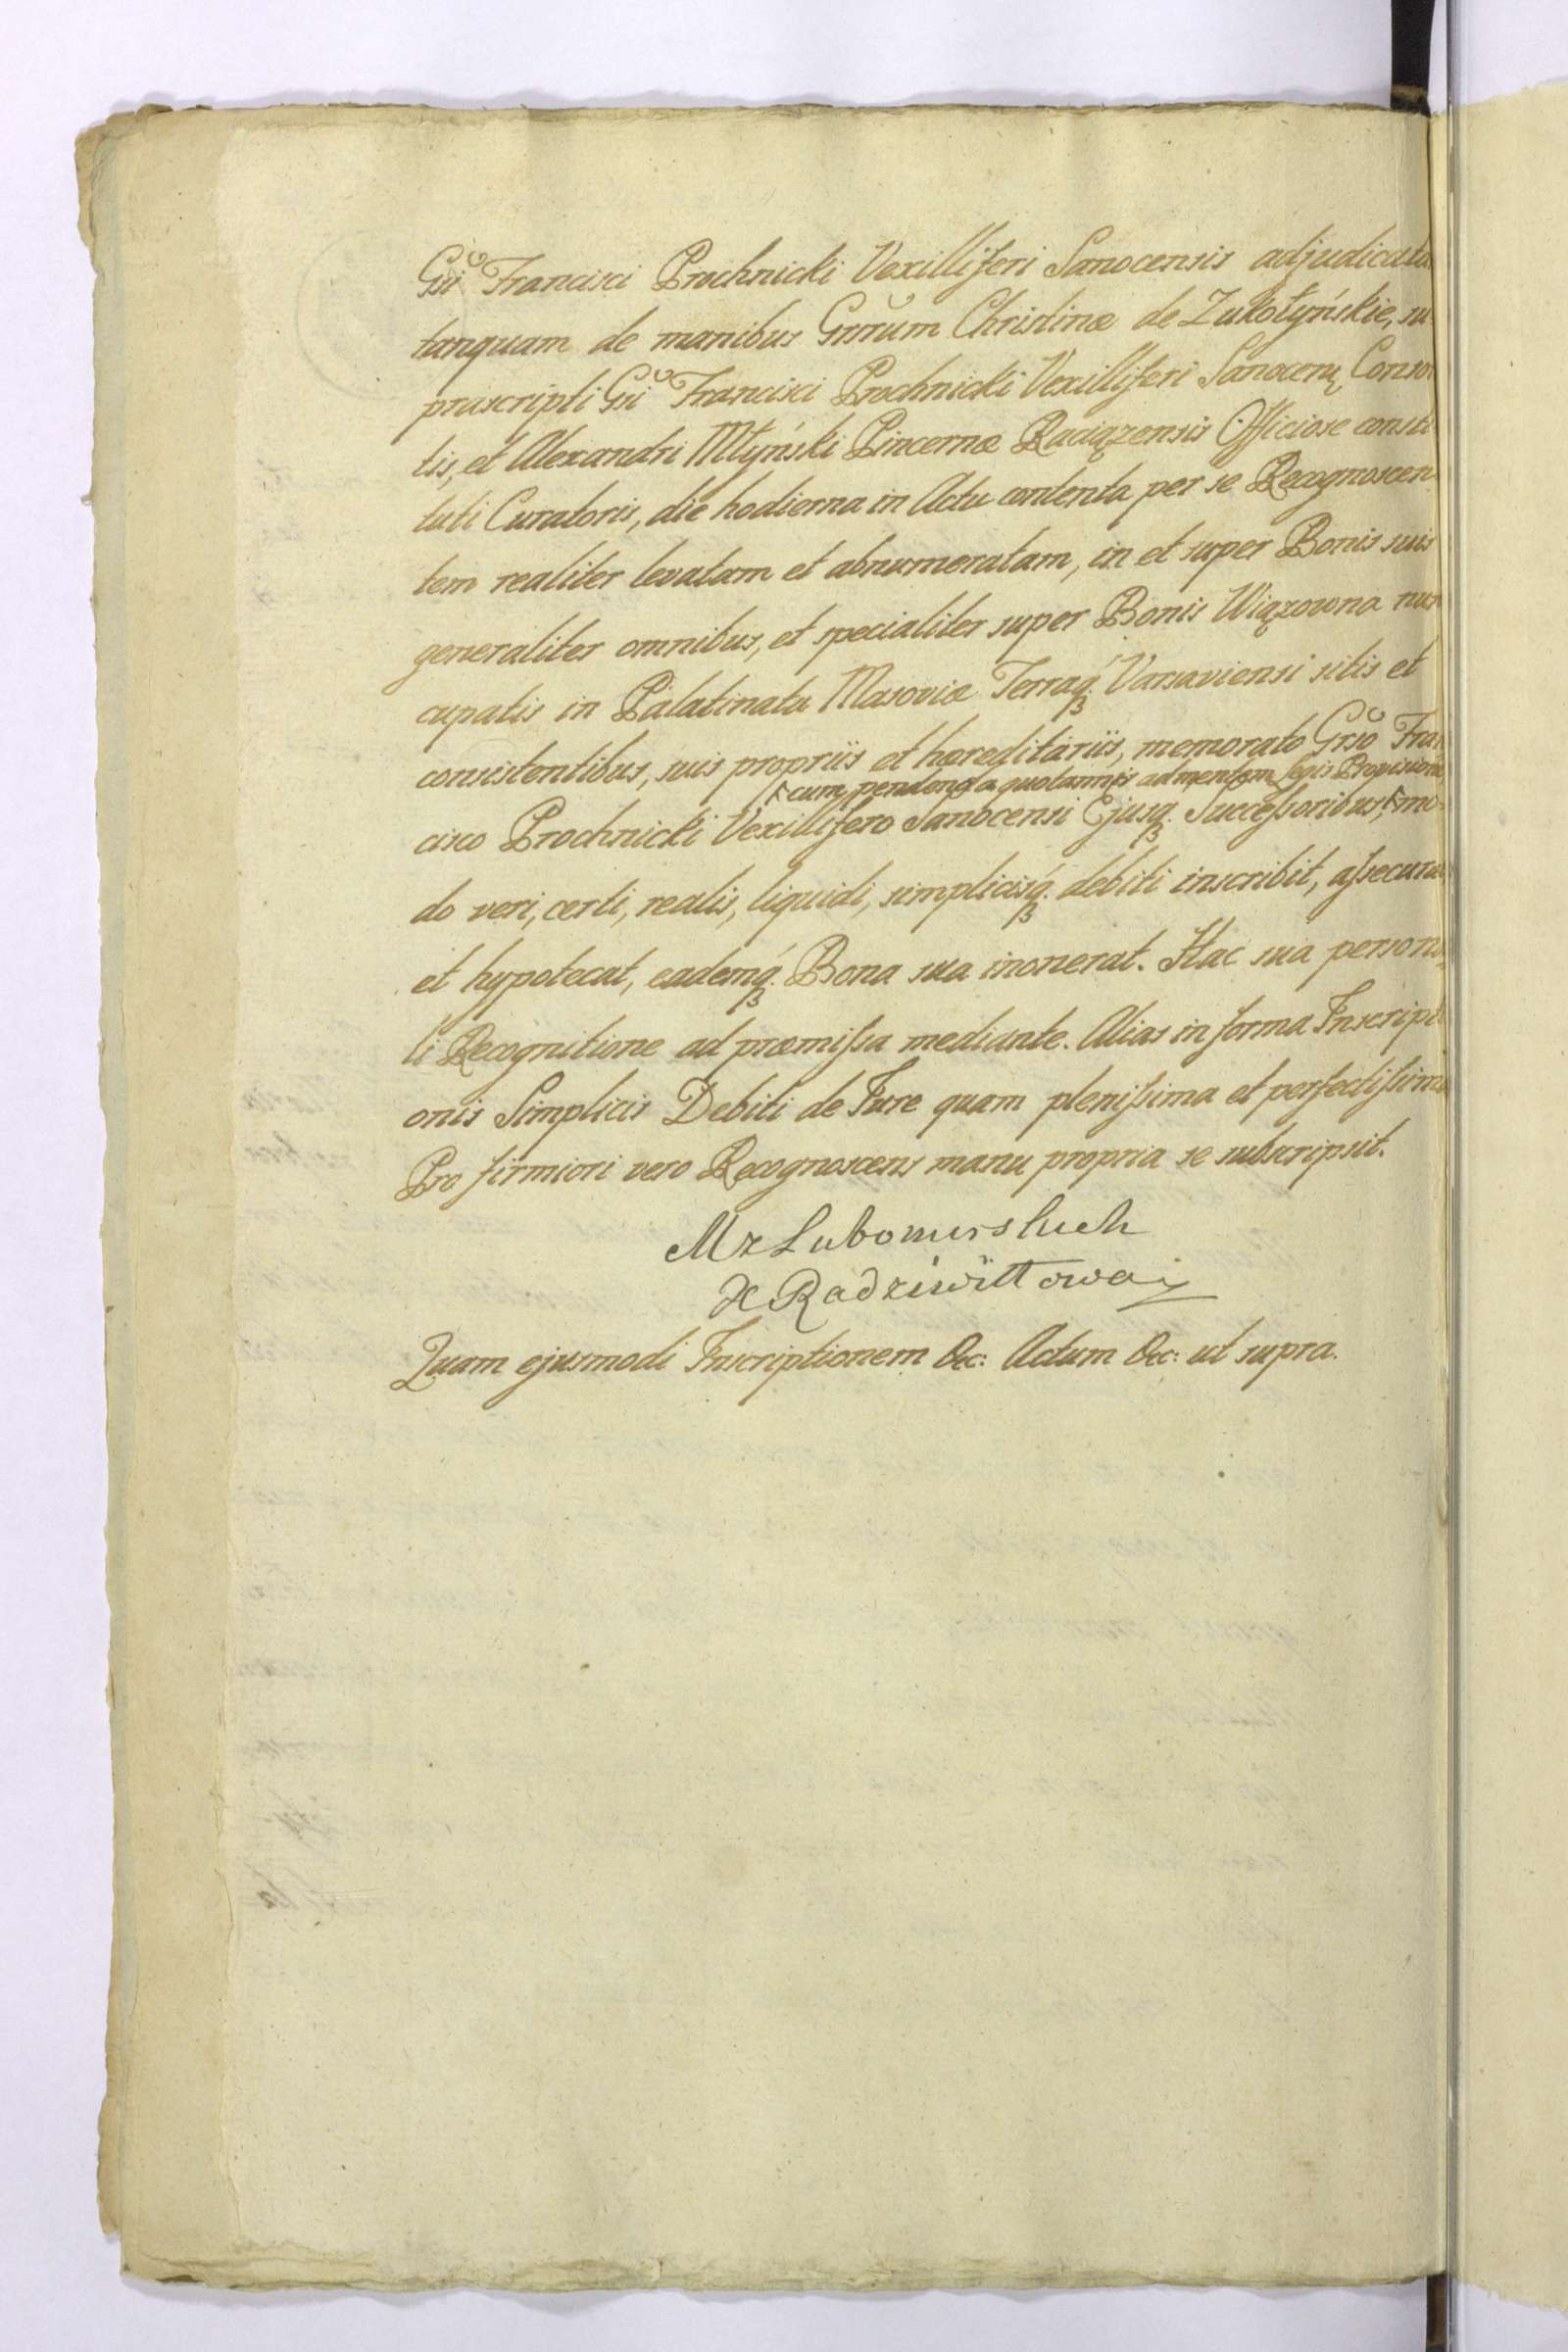 Gsi Francisci Prochnicki Vexilliferi Sanocensis adjudicata
tanquam de manibus Grrum Christinæ de Zukotyńskie, su
prascripti Gsi Francisci Prochnicki Vexilliferi Sanocen, Consor
tis, et Alexandri Młyński Pincernæ Raciązensis Officiose consti
tuti Curatoris, die hodierna in Actu contenta per se Recognoscen
tem realiter levatam et abnumeratam, in et super Bonis suis
generaliter omnibus, et specialiter super Bonis Wiązowna nun
cupatis in Palatinatu Masoviæ Terraq; Varsaviensi sitis et
consistentibus, suis propriis et hæreditariis, memorato Grso Fran
cum pendenda quotannis ad mentem legis Provisione
cisco Prochnicki Vexillifero Sanocensi Ejusq; Successoribus, mo-
do veri, certi, realis, liquidi, simplicisq; debiti inscribit, assecurat
et hypotecat, eademq; Bona sua inonerat. Hac sua persona
li Recognitione ad præmissa mediante. Alias in forma Inscripti
onis Simplicis Debiti de Jure quam plenissima et perfectissima
Pro firmiori vero Recognoscens manu propria se subscripsit.
Mz Lubomirskich
X Radziwiłłowa
Quam ejusmodi Inscriptionem &c: Actum &c: ut supra.